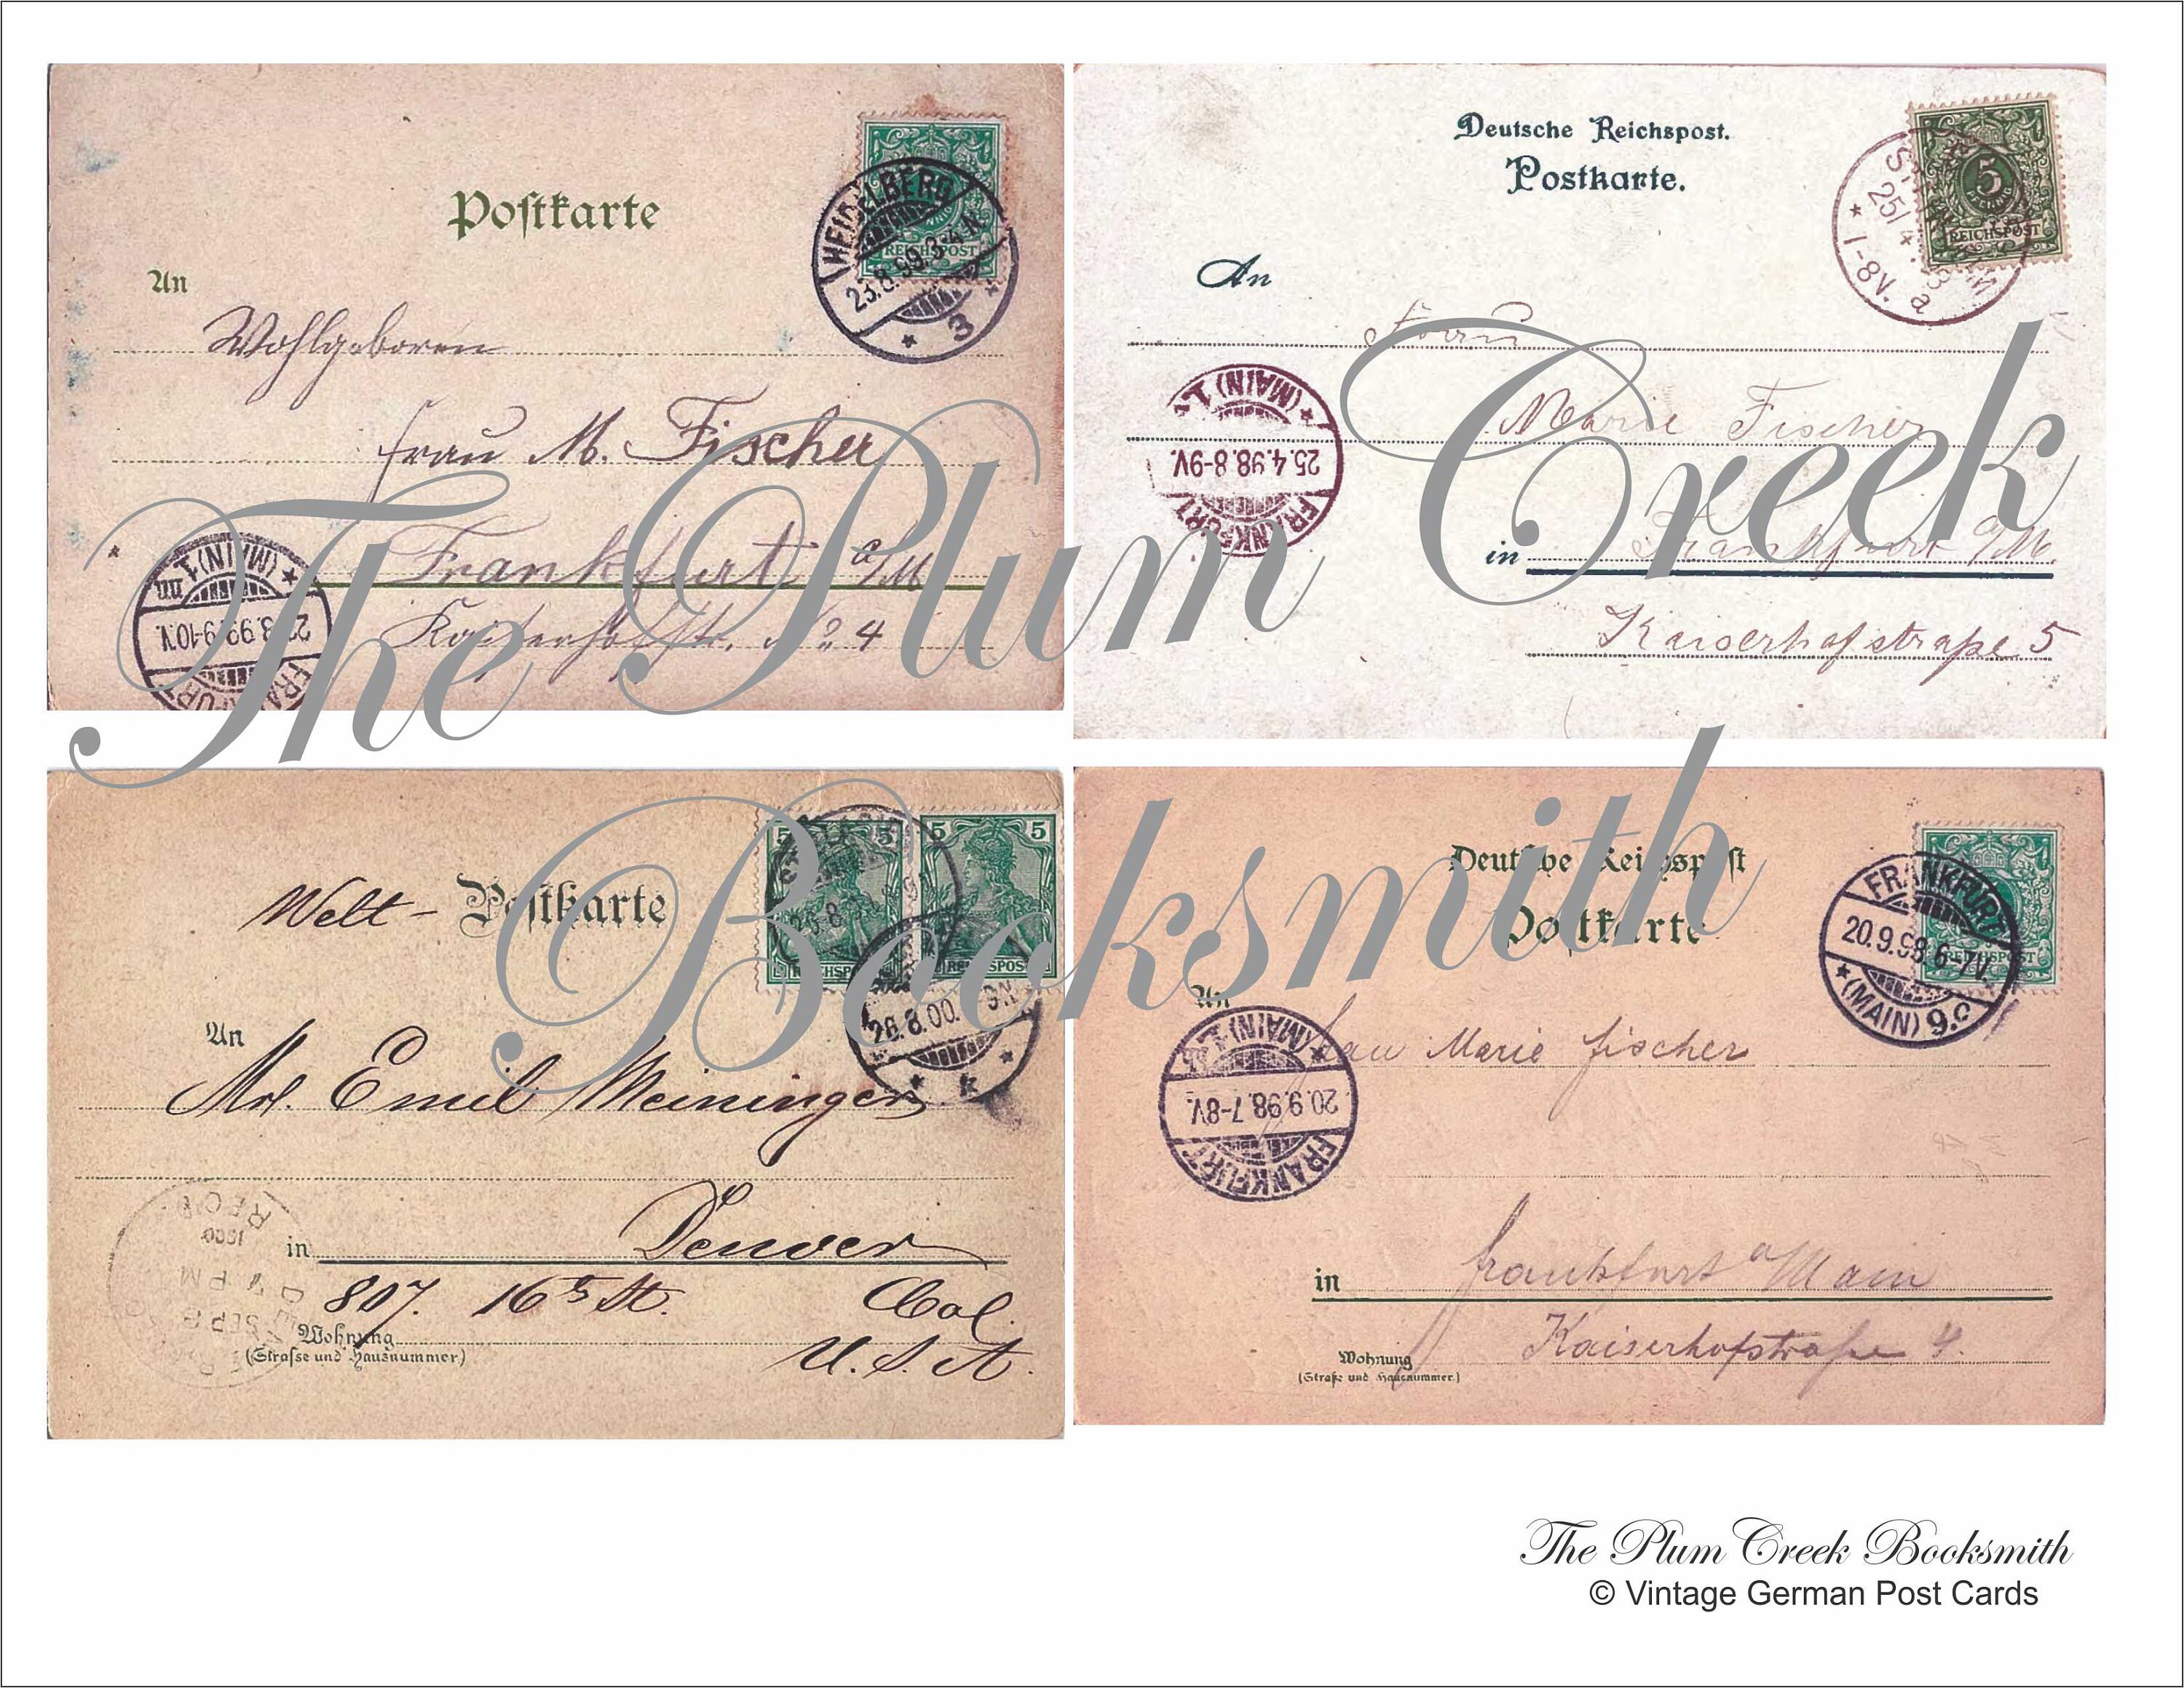 Postkarte
HEIDELBERG
23.8.99.3-4N.
* 3 *
REICHSPOST
An
Wohlgeboren
Frau M. Fischer
Frankfurt a/M
Kaiserhofstr. No 4
FRANKFURT
9-10V.
* (MAIN) 1
Deutsche Reichspost.
Postkarte.
5
REICHSPOST
25/4
1-8V.
a
An
Frau
Marie Fischer
in Frankfurt a/M
Kaiserhofstraße 5
FRANKFURT
25.4.98.8-9V.
* (MAIN) 1.
Welt-Postkarte
5 5
5 5
REICHSPOST
REICHSPOST
26.8.00.
* k *
An
Mr. Emil Meininger
in Denver
807. 16 St. Col.
Wohnung
(Strasse und Hausnummer)
U.S.A.
REC'D
1900
PM
SEP
Deutsche Reichspost
Postkarte
FRANKFURT
20.9.98.6-7V.
* (MAIN) 9.
REICHSPOST
An
Frau Marie Fischer
in Frankfurt a/Main
Kaiserhofstraße 4.
Wohnung
(Straße und Hausnummer.)
FRANKFURT
20.9.98.7-8V.
* (MAIN) 1.
The Plum Creek
Booksmith
The Plum Creek Booksmith
© Vintage German Post Cards